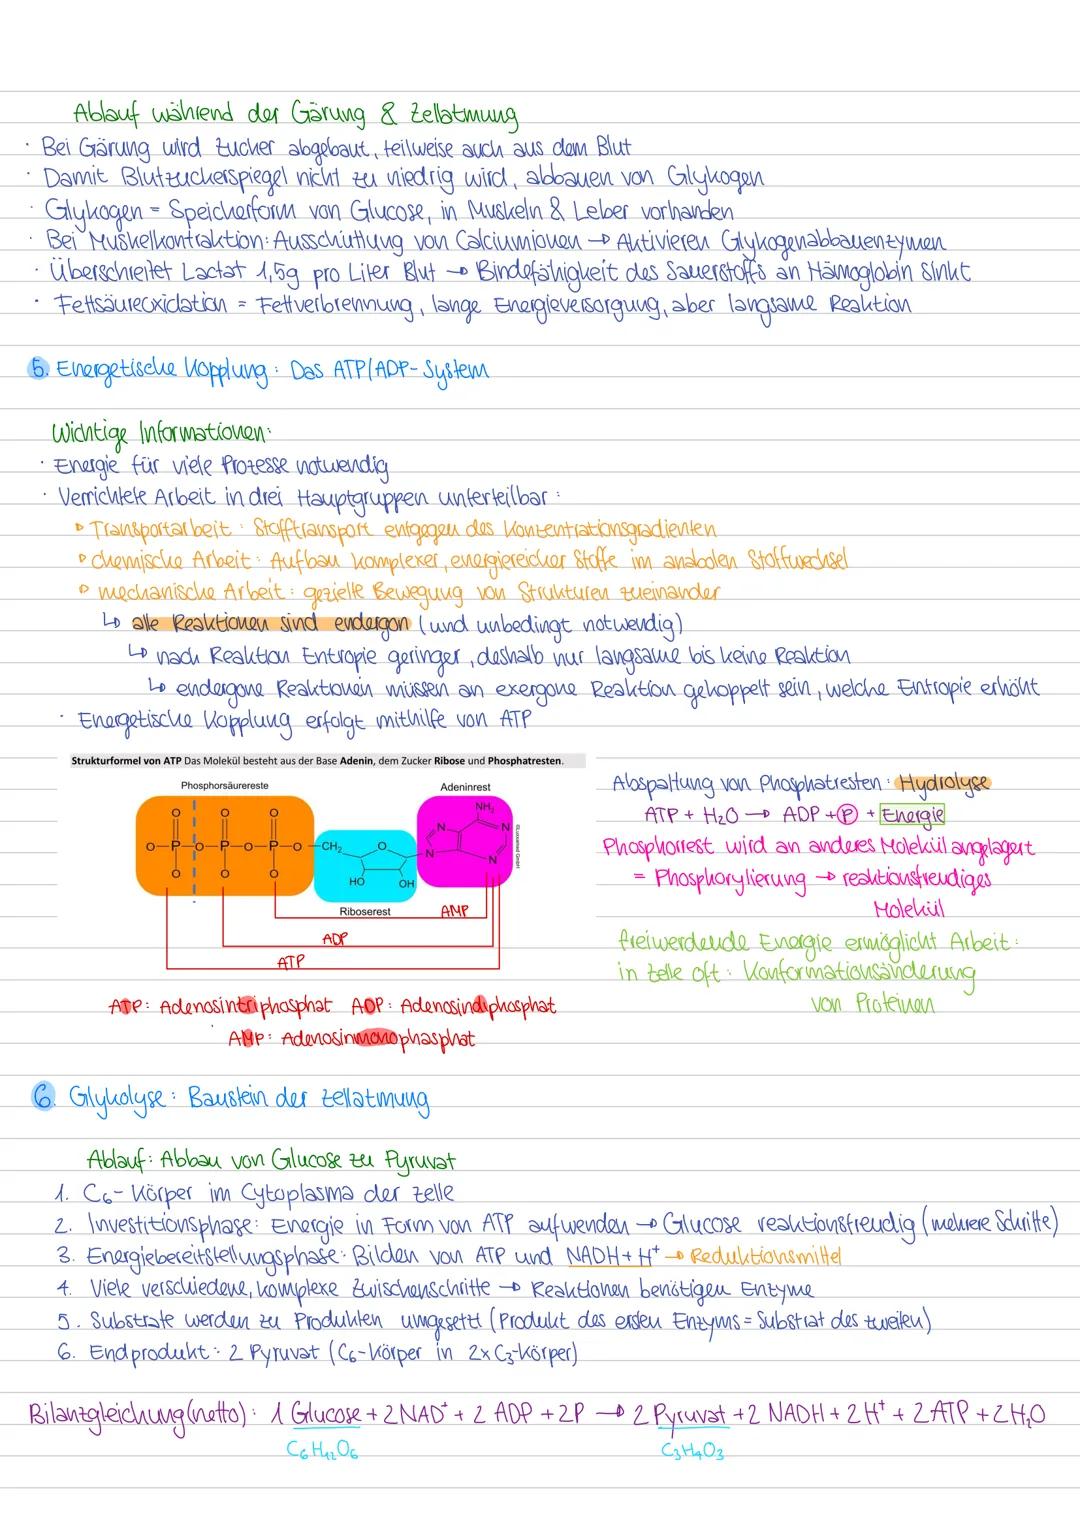 Ablauf während der Gärung & Zellatmung
· Bei Gärung wird Zucker abgebaut, teilweise auch aus dem Blut
· Damit Blutzuckerspiegel nicht zu niedrig wird, abbauen von Glykogen
· Glykogen = Speicherform von Glucose, in Muskeln & Leber vorhanden
· Bei Muskelkontraktion: Ausschüttung von Calciumionen → Aktivieren Glykogenabbauenzymen
· Überschreitet Lactat 1,5g pro Liter Blut → Bindefähigkeit des Sauerstoffs an Hämoglobin sinkt
· Fettsäureoxidation = Fettverbrennung, lange Energieversorgung, aber langsame Reaktion
5. Energetische Kopplung: Das ATP/ADP-System
Wichtige Informationen:
· Energie für viele Prozesse notwendig
· Verrichtete Arbeit in drei Hauptgruppen unterteilbar:
▹ Transportarbeit: Stofftransport entgegen des Konzentrationsgradienten
▹ chemische Arbeit: Aufbau komplexer, energiereicher Stoffe im anabolen Stoffwechsel
▹ mechanische Arbeit: gezielte Bewegung von Strukturen zueinander
↳ alle Reaktionen sind endergon (und unbedingt notwendig)
↳ nach Reaktion Entropie geringer, deshalb nur langsame bis keine Reaktion
↳ endergone Reaktionen müssen an exergone Reaktion gekoppelt sein, welche Entropie erhöht
· Energetische Kopplung erfolgt mithilfe von ATP
Strukturformel von ATP Das Molekül besteht aus der Base Adenin, dem Zucker Ribose und Phosphatresten.
Phosphorsäurereste
Adeninrest
NH₂
O O O
N N
O–P–O–P–O–P–O–CH₂
O
N N
O O O
HO OH
Riboserest
AMP
ADP
ATP
ATP: Adenosintriphosphat ADP: Adenosindiphosphat
AMP: Adenosinmonophosphat
Abspaltung von Phosphatresten: Hydrolyse
ATP + H₂O → ADP + Ⓟ + Energie
Phosphorrest wird an anderes Molekül angelagert
= Phosphorylierung → reaktionsfreudiges
Molekül
freiwerdende Energie ermöglicht Arbeit:
in Zelle oft: Konformationsänderung
von Proteinen
6. Glykolyse: Baustein der Zellatmung
Ablauf: Abbau von Glucose zu Pyruvat
1. C₆-Körper im Cytoplasma der Zelle
2. Investitionsphase: Energie in Form von ATP aufwenden → Glucose reaktionsfreudig (mehrere Schritte)
3. Energiebereitstellungsphase: Bilden von ATP und NADH + H⁺ → Reduktionsmittel
4. Viele verschiedene, komplexe Zwischenschritte → Reaktionen benötigen Enzyme
5. Substrate werden zu Produkten umgesetzt (Produkt des ersten Enzyms = Substrat des zweiten)
6. Endprodukt: 2 Pyruvat (C₆-Körper in 2x C₃-Körper)
Bilanzgleichung (netto): 1 Glucose + 2 NAD⁺ + 2 ADP + 2P → 2 Pyruvat + 2 NADH + 2 H⁺ + 2 ATP + 2 H₂O
C₆H₁₂O₆ C₃H₄O₃